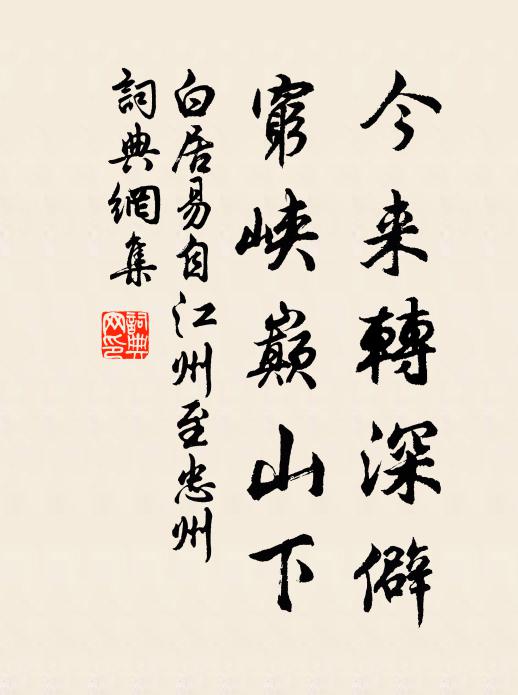 今来轉深僻
窮峽巔山下
白居易自江州至忠州
詞典網集
詞典
网印